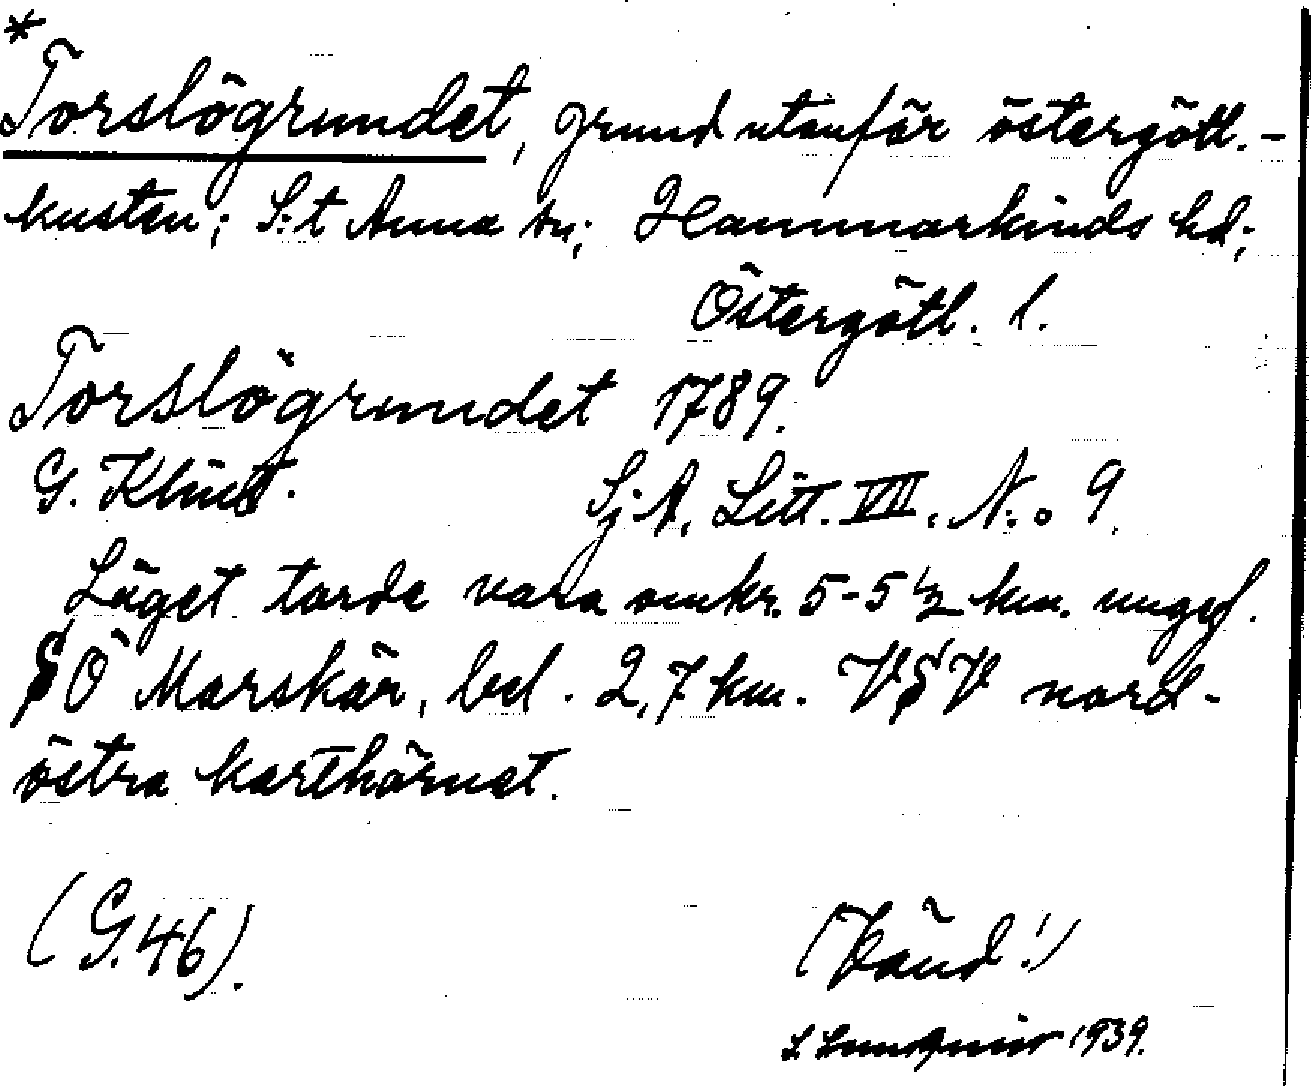 *
Torslögrundet, grund utanför östergötl.-
kusten; S:t Anna sn; Hammarkinds hd;
Östergötl. l.
Torslögrundet 1789.
G. Klint. Sj.A. Litt. VII. N:o 9.
Läget torde vara omkr. 5-5 1/2 km. ungef.
SÖ Morskär, bel. 2,7 km. VSV nord-
östra karthörnet.
(G.46).
(Vänd!)
S. Lundqvist 1939.